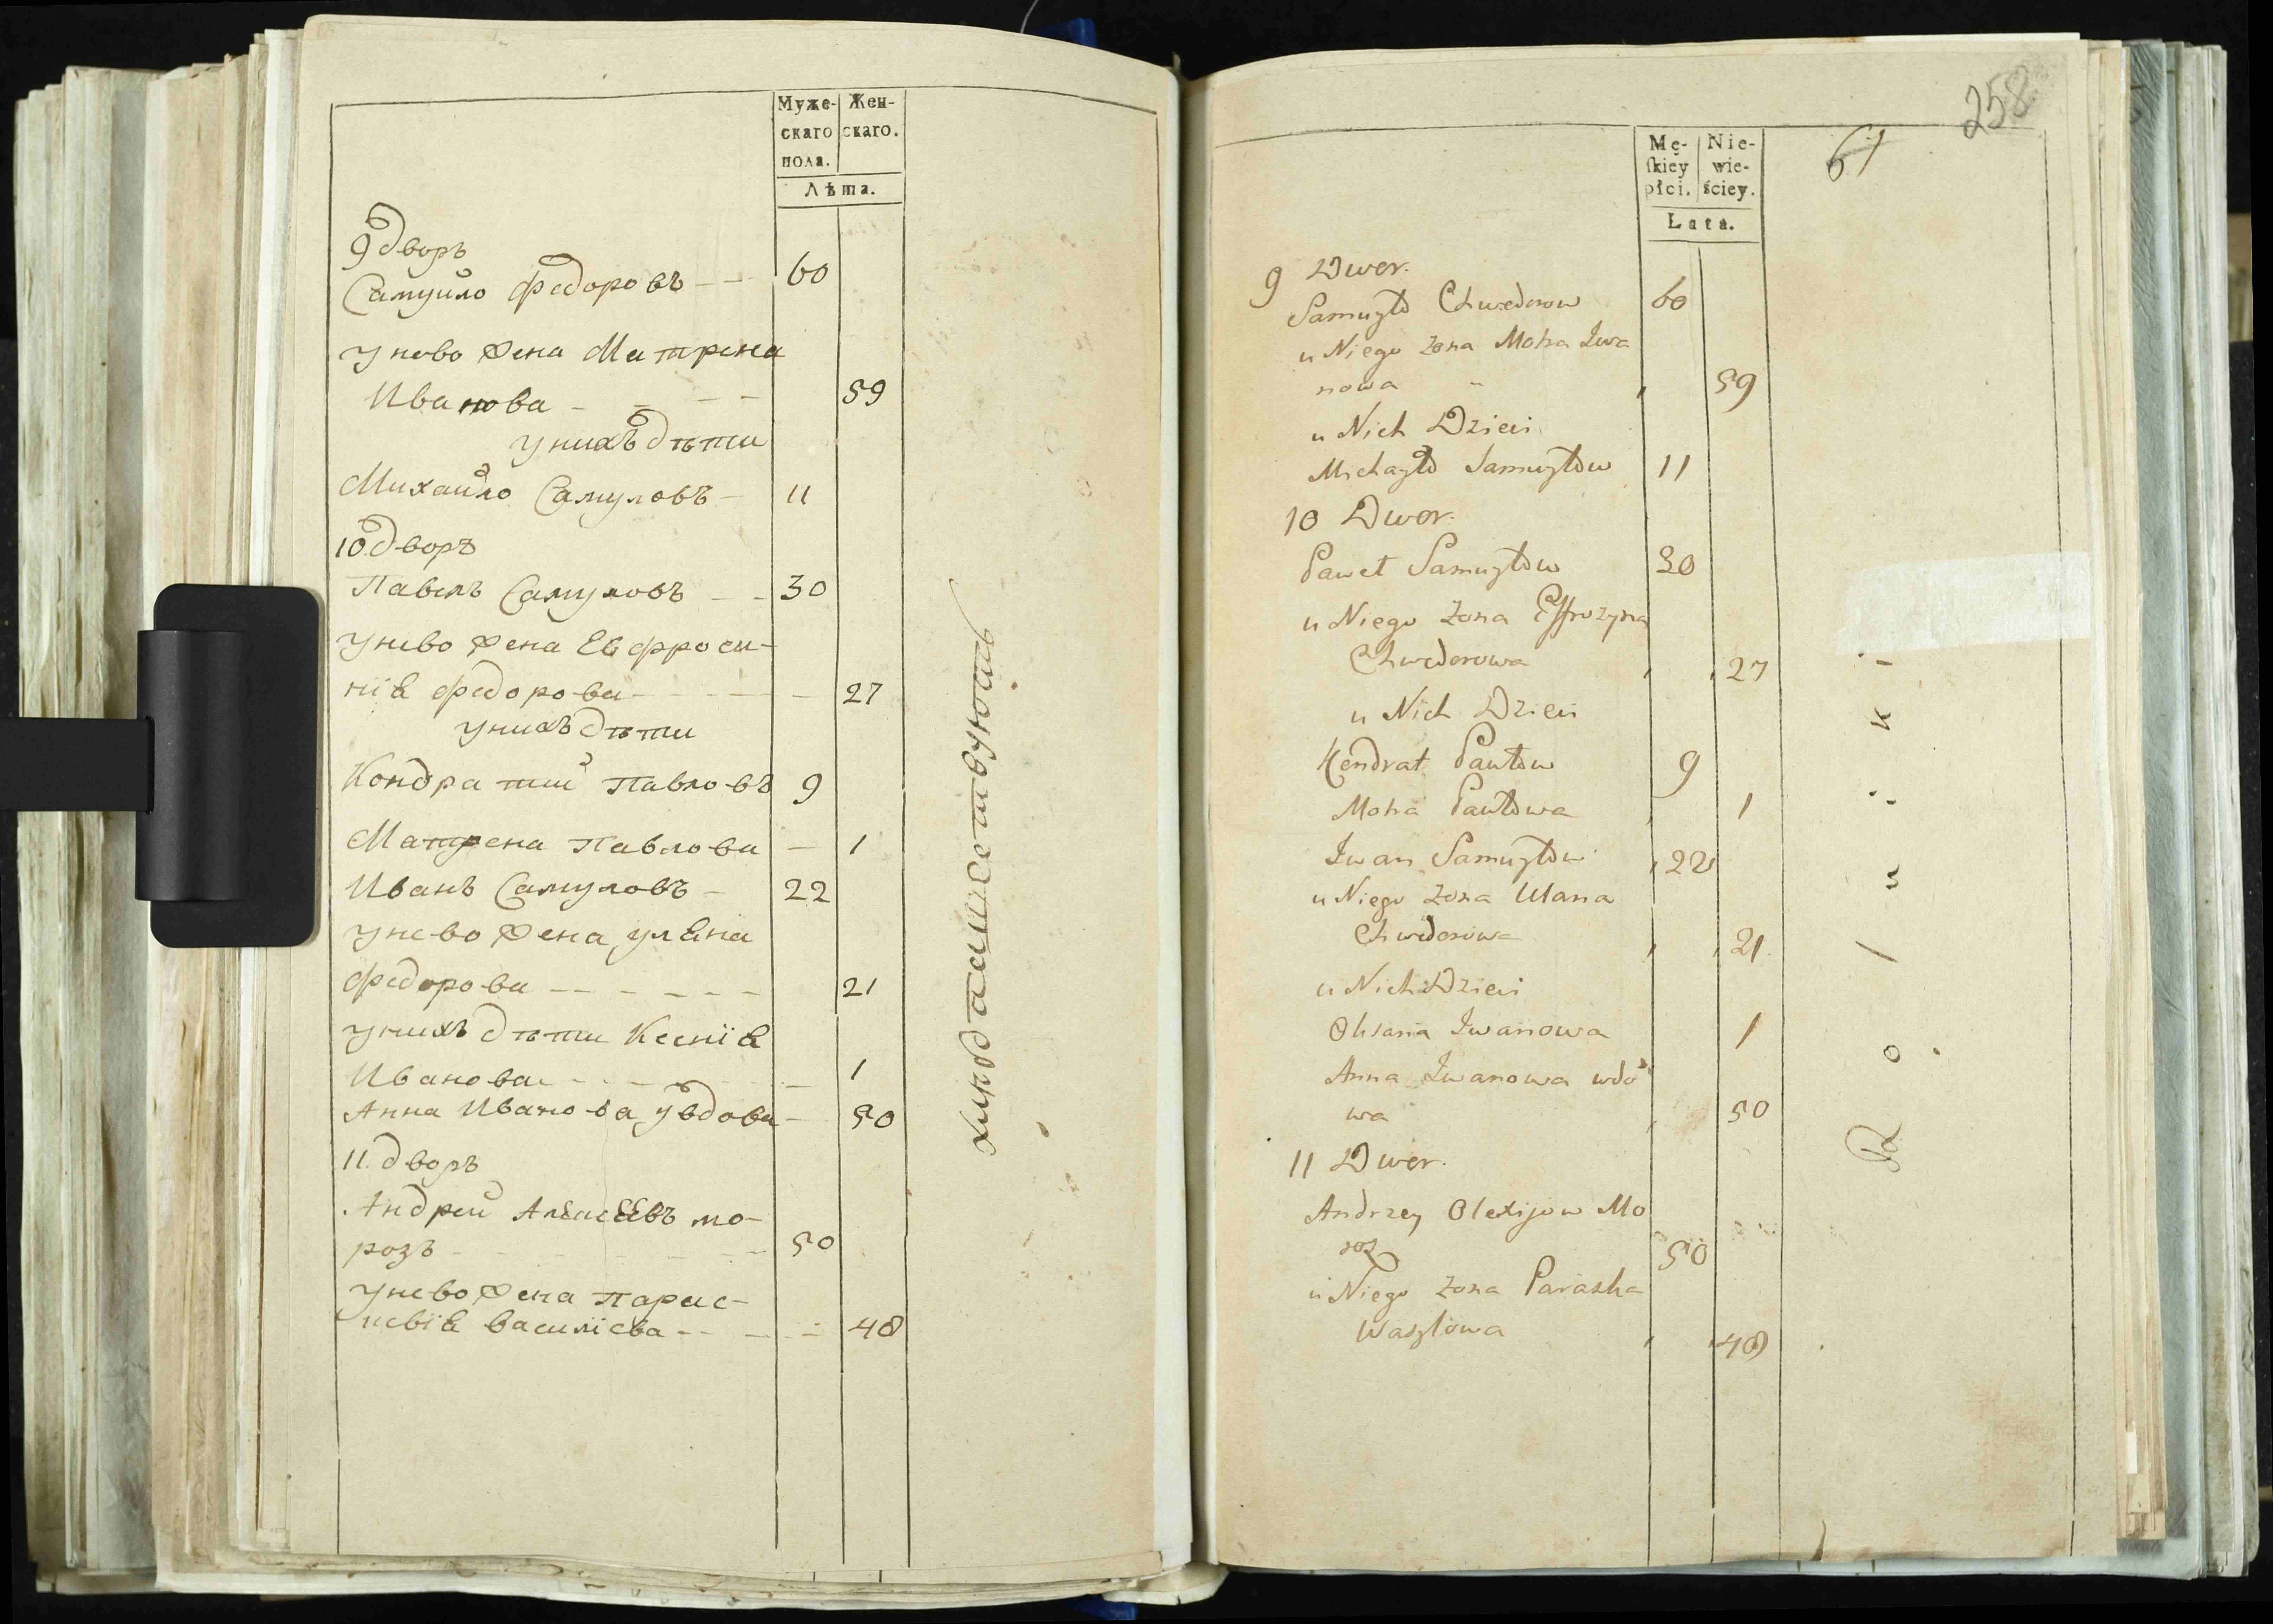 Муже-
скаго
пола.
Жен-
скаго.
Лѣта.
9 дворъ
Самуило Федоровъ 60
у нево жена Матрена
Иванова 59
у нихъ дѣти
Михайло Самуловъ 11
10 дворъ
Павелъ Самуловъ 30
у нево жена Евфроси-
нія Федорова 27
у нихъ дѣти
Кондратий Павловъ 9
Матрена Павлова 1
Иванъ Самуловъ 22
у нево жена уляна
Федорова 21
у нихъ дѣти Ксенія
Иванова 1
Анна Иванова удова 50
11 дворъ
Андрей Алексѣевъ мо-
розъ 50
у нево жена парас-
кевія василіева 48
258
61
Mę-
skiey
płci.
Nie-
wie-
ściey.
Lata.
9 Dwor.
Samuyło Chwedorow 60
u Niego żona Motra Iwa
nowa 59
u Nich Dzieci
Michayło Samuyłow 11
10 Dwor.
Paweł Samuyłow 30
u Niego żona Effrozyna
Chwedorowa 27
u Nich Dzieci
Kondrat Pawłow 9
Motra Pawłowa 1
Iwan Samuyłow 22
u Niego żona Ulana
Chwedorowa 21
u Nich Dzieci
Oksana Iwanowa 1
Anna Iwanowa wdo
wa 50
11 Dwor.
Andrzey Olexijow Mo
roz 50
u Niego żona Paraska
Wasylowa 48